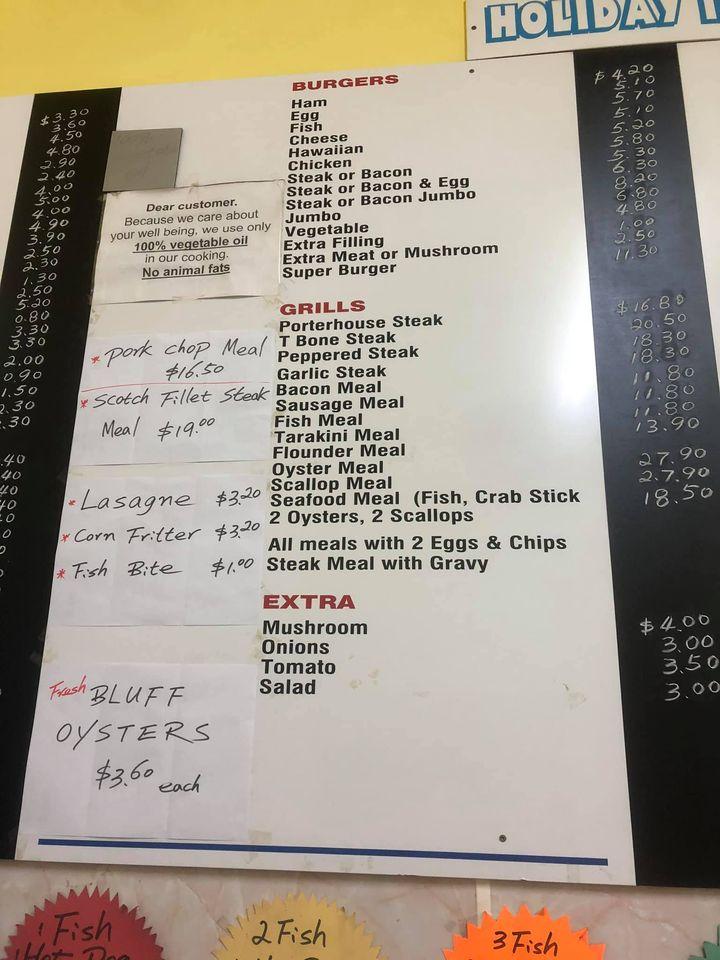 HOLIDAY
$3.30
3.60
4.50
4.80
2.90
2.40
4.00
5.00
4.00
4.90
3.90
2.50
2.30
1.30
2.50
5.20
0.80
3.30
3.30
2.00
0.90
1.50
.30
.30
.40
40
40
40
Dear customer.
Because we care about
your well being, we use only
100% vegetable oil
in our cooking.
No animal fats
* Pork Chop Meal
$16.50
* Scotch Fillet Steak
Meal $19.00
* Lasagne $3.20
* Corn Fritter $3.20
* Fish Bite $1.00
Fresh BLUFF
OYSTERS
$3.60 each
BURGERS
Ham
Egg
Fish
Cheese
Hawaiian
Chicken
Steak or Bacon
Steak or Bacon & Egg
Steak or Bacon Jumbo
Jumbo
Vegetable
Extra Filling
Extra Meat or Mushroom
Super Burger
GRILLS
Porterhouse Steak
T Bone Steak
Peppered Steak
Garlic Steak
Bacon Meal
Sausage Meal
Fish Meal
Tarakini Meal
Flounder Meal
Oyster Meal
Scallop Meal
Seafood Meal (Fish, Crab Stick
2 Oysters, 2 Scallops
All meals with 2 Eggs & Chips
Steak Meal with Gravy
EXTRA
Mushroom
Onions
Tomato
Salad
$4.20
5.10
5.70
5.10
5.20
5.80
5.30
6.30
8.20
6.80
4.80
1.00
2.50
11.30
$16.80
20.50
18.30
18.30
11.80
11.80
11.80
13.90
27.90
27.90
18.50
$4.00
3.00
3.50
3.00
1 Fish
1 Hot Dog
2 Fish
3 Fish